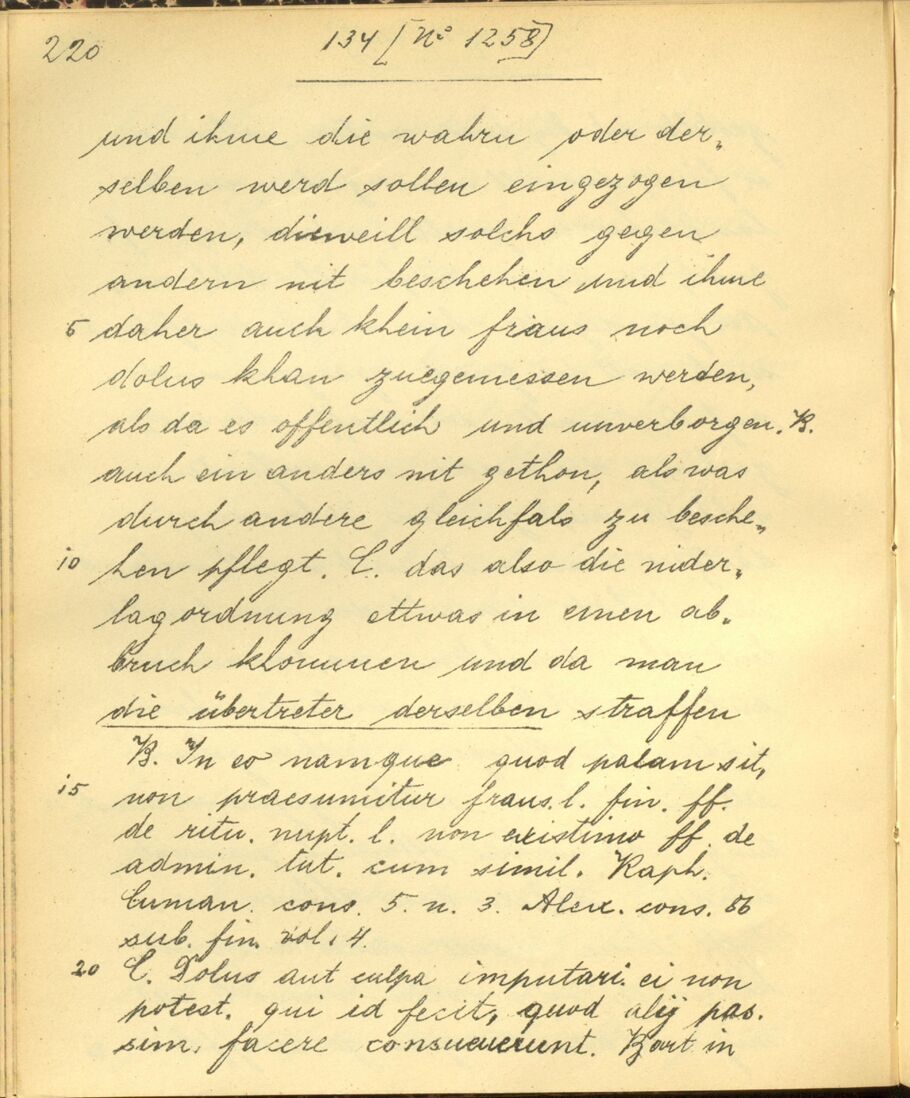 220
134 [Nº 1258]
und ihme die wahru oder der„
selben werd sollen eingezogen
werden, dieweill solchs gegen
andern nit beschehen und ihme
5 daher auch khein fraus noch
dolus khan zuegemessen werden,
als da es offentlich und unverborgen. B.
auch ein anders nit gethon, als was
durch andere gleichfals zu besche„
10 hen pflegt. C. das also die nider„
lagordnung ettwas in einen ab„
bruch khommen und da man
die übertreter derselben straffen
B. In eo namque quod palam sit,
15 non praesumitur fraus. l. fin. ff.
de ritu. nupt. l. non existimo ff. de
admin. tut. cum simil. Raph.
Cuman. cons. 5. n. 3. Alex. cons. 56
sub. fin. vol. 4.
20 C. Dolus aut culpa imputari ei non
potest. qui id fecit, quod alij pas.
sim. facere consueuerunt. Bart in